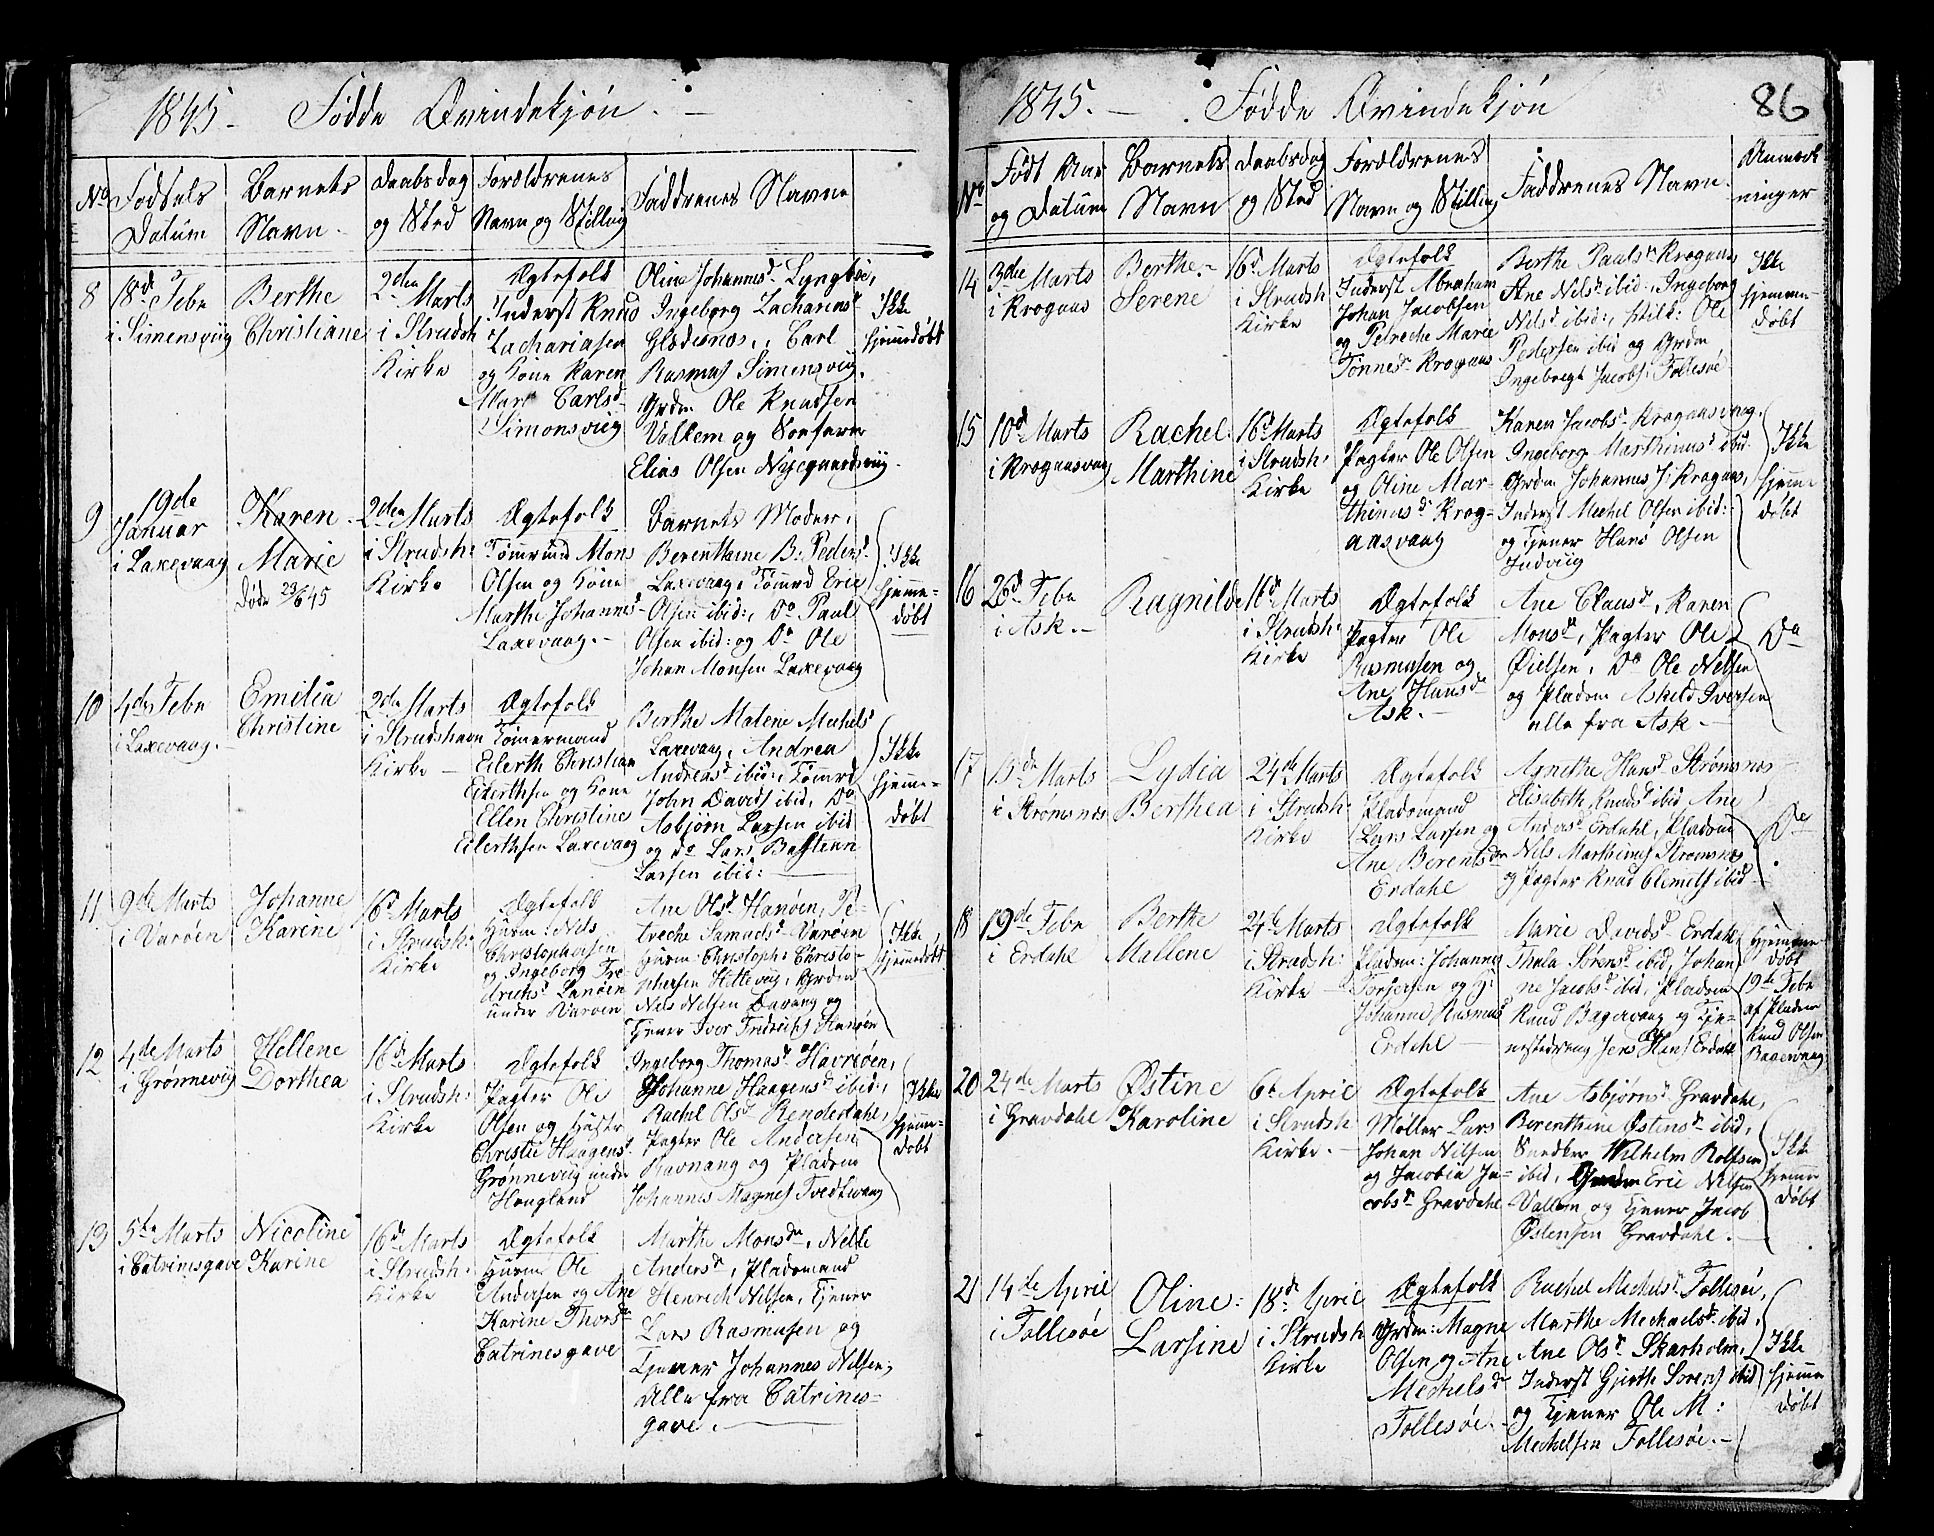 1845. Fødde Qvindekjøn.
No
Fødsels
Datum
Barnets
Navn
Daabsdag
og Sted
Forældrenes
Navn og Stilling
Faddrenes Navne
8
18d Febr
i Simensviig
Berthe
Christiane
2den Marts
i Strudsh
Kirke
Ægtefolk
Inderst Knud
Zachariasen
og Kone Karen
Mart Carlsd
Simonsviig
Oline Johannesd Lyngbøe,
Ingeborg Zachariasd
Glæsnæs, Carl
Rasmus Simensviig.
Grdm Ole Knudsen
Vollem og
Elias Olsen Nygaardsviig.
Ikke
hjemedøbt
9
19de
Januar
i Laxevaag
Karen
Marie
Døde 23/6 45
2den Marts
i Strudsh:
Kirke
Ægtefolk
Tømrmd Mons
Olsen og Kone
Marthe Johannesd
Laxevaag.
Barnets Moder,
Berenthine B. Pedersd
Laxevaag, Tømrd Eric
Olsen ibid:, Do Paul
Olsen ibid: og Do Ole
Johan Monsen Laxevaag
Ikke
hjeme-
døbt
10
4de Febr
i Laxevaag.
Emilia
Christine
2den Marts
i Strudshavn
Kirke
Ægtefolk
Tømermand
Eilerth Christian
Eilerthsen og Kone
Ellen Christine
Eilerthsen Laxevaag
Berthe Malene Mechelsd
Laxevaag, Andrea
Andreasd ibid:, Tømrd
John Davids ibid, Do
Asbjørn Larsen ibid
og do Lars Bastian
Larsen ibid:
Ikke
hjeme-
døbt
11
9de Marts
i Varøen
Johanne
Karine
16d Marts
i Strudsh:
Kirke
Ægtefolk
Huusm: Nils
Christophersen
og Ingeborg
under Varøen
Ane Olsd Hanøen, Pe-
treche Samuelsd Varøen
Huusm: Christoph: Christo-
phersen Hillevig, Grdm
Nils Nilsen
Tjener Iver Fredrichs Hanøen
Ikke
hjemedøbt
12
4de Marts
i Grønneviig
Hellene
Dorthea
16de Marts
i Strudsh:
Kirke
Ægtefolk
Pagter Ole
Olsen og Hustr
Christie Haagensd
Grønneviig under
Hougland
Ingeborg Thomasd Havrøen,
Johanne Haagensd ibid:,
Rachel Olsd Rendedahl,
Pagter Ole Andersen
Ravnang og Pladsm
Johannes Magnes Tvedtvaag
Ikke
hjeme-
døbt
13
5te Marts
i Catrinesgave
Nicoline
Karine
16d Marts
i Strudsh:
Kirke
Ægtefolk
Huusm: Ole
Andersen og Ane
Karine Thorsdr
Catrinesgave
Marthe Monsdr, Nelle
Andersd, Pladsmand
Henrich Nilsen, Tjener
Lars Rasmusen og
Tjener Johannes Nilsen,
Alle fra Catrines-
gave.
1845. Fødde Qvindekjøn
86
No
Født Aar
og Datum
Barnets
Navn
Daabsdag
og Sted
Forældrenes
Navn og Stilling
Faddrenes Navn.
Anmerk
ninger
14
3die Marts
i Krogaas
Berthe
Serene
16d Marts
i Strudsh
Kirke
Ægtefolk
Inderst Abraham
Johan Jacobsen
og Petreche Marie
Tønnesd Krogaas
Berthe Paulsdr Krogaas,
Ane Nilsd ibid:, Ingeborg
Nilsd ibid:, Ole
Pedersen ibid og Grdm
Ingebregt Jacobs: Follesøe
Ikke
hjemme-
døbt
15
10d Marts
i Krogaasvaag
Rachel
Marthine
16d Marts
i Strudsh:
Kirke
Ægtefolk
Pagter Ole Olsen
og Oline Mar-
thinusd Krog-
aasvaag
Karen Jacobsd Krogaasvaag,
Ingeborg Marthinusd ibid:
Grdm Johannes J: Krogaas,
Inderst Mechel Olsen ibid:
og Tjener Hans Olsen
Indviig
Ikke
hjeme-
døbt
16
26d Febr
i Ask.
Ragnilde
16de Marts
i Strudsh:
Kirke
Ægtefolk
Pagter Ole
Rasmusen og
Ane Hansdr
Ask.
Ane Clausd, Karen
Monsdr, Pagter Ole
Øielsen, Do Ole Nilsen
og Pladsm Askild Iversen
alle fra Ask.
Do
17
13de Marts
i Strømsnæs
Lydia
Berthea
24de Marts
i Strudsh:
Kirke
Ægtefolk
Pladsmand
Lars Larsen og
Ane Berentsdr
Erdahl
Agnethe Hansd Strømsnæs
Elisabeth Knudsd ibid, Ane
Andersd Erdahl, Pladsm
Nils Marthines Strømsnæs
og Pagter Knud Clemets ibid
Do
18
19de Febr
i Erdahl
Berthe
Mallene
24de Marts
i Strudsh:
Kirke
Ægtefolk
Pladsm: Johannes
Torgersen og H:
Johanne Rasmusd
Erdahl
Marie Davidsd Erdahl,
Thala Sørensd ibid, Johan
ne Jacobsd ibid, Pladsm
Knud Bagervaag og Tje-
nestedreng Jens Hans Erdahl
hjemme
døbt
19de Febr
af Pladsm
Knud Olsen
Bagervaag
20
24de Marts
i Gravdahl
Østine
Karoline
6te April
i Strudsh
Kirke.
Ægtefolk
Møller Lars
Johan Nilsen
og Jacobia Ja-
cobsd Gravdahl
Ane Asbjørnsd Gravdahl,
Berenthine Østensd ibid,
Snedker Wilhelm Rolfsen
ibid, Grdm Eric Nilsen
Vallem og Tjener Jacob
Østensen Gravdahl.
Ikke
hjemme
døbt
21
14de April
i Follesøe
Oline
Larsine
18d April
i Strudsh
Kirke
Ægtefolk
Grdm: Magne
Olsen og Ane
Mechelsdr
Follesøe.
Rachel Mechelsd Follesøe,
Marthe Mechaelsd ibid,
Ane Olsd Skarholm,
Inderst Gjerth Sørens ibid
og Tjener Ole M:
Mechelsen Follesøe.
Ikke
hjeme
døbt